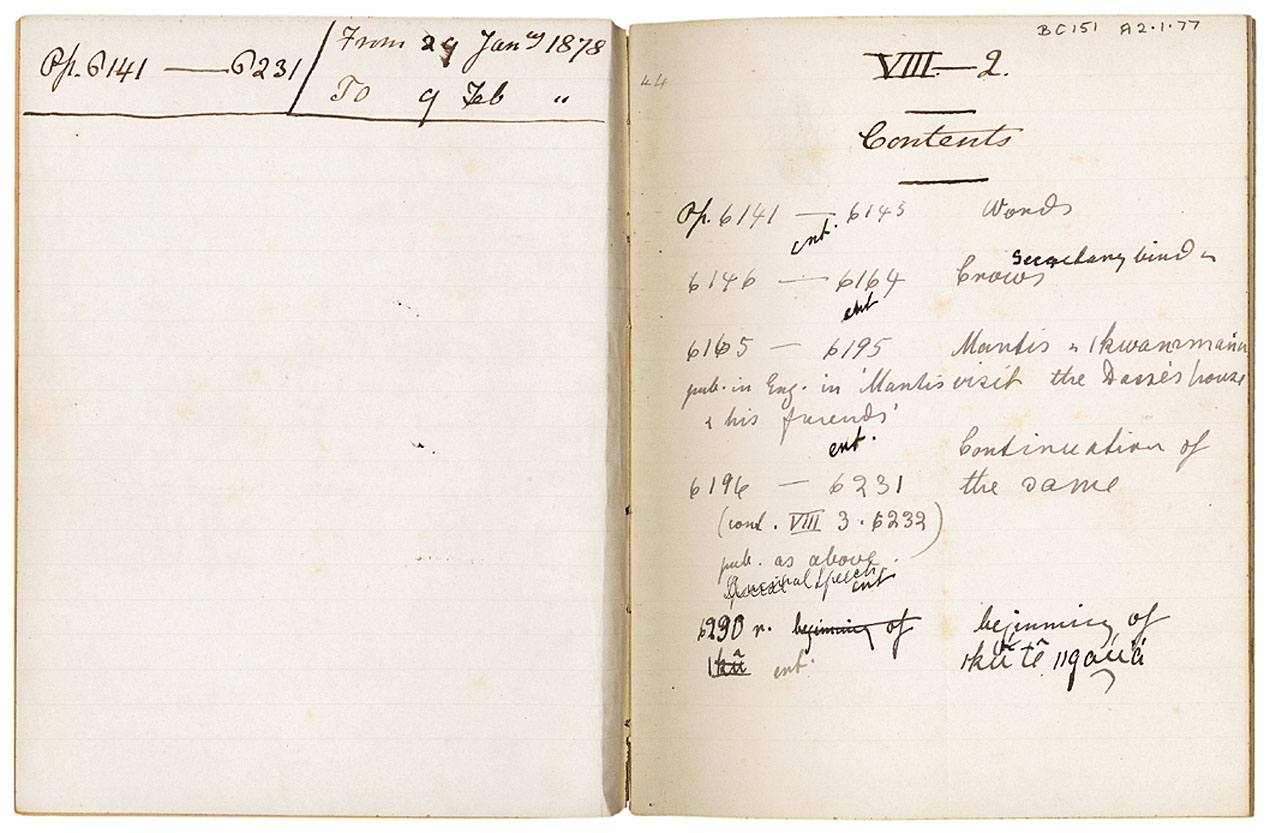 Pp. 6141 — 6231
From 29 Jany 1878
To 9 Feb "
BC151 A2.1.77
44
VIII — 2.
Contents
Pp. 6141 — 6145 Words
ent.
Secretary bird &
6146 — 6164 Crows
ent
6165 — 6195 Mantis & ǀkwammaṅa
pub. in Eng. in 'Mantis visit the Dasse's house
& his friends'
ent. Continuation of
6196 — 6231 the same
(cont. VIII 3. 6232)
pub. as above.
Special Speech ent
6230 r. beginning of beginning of
ǀkũ ent.